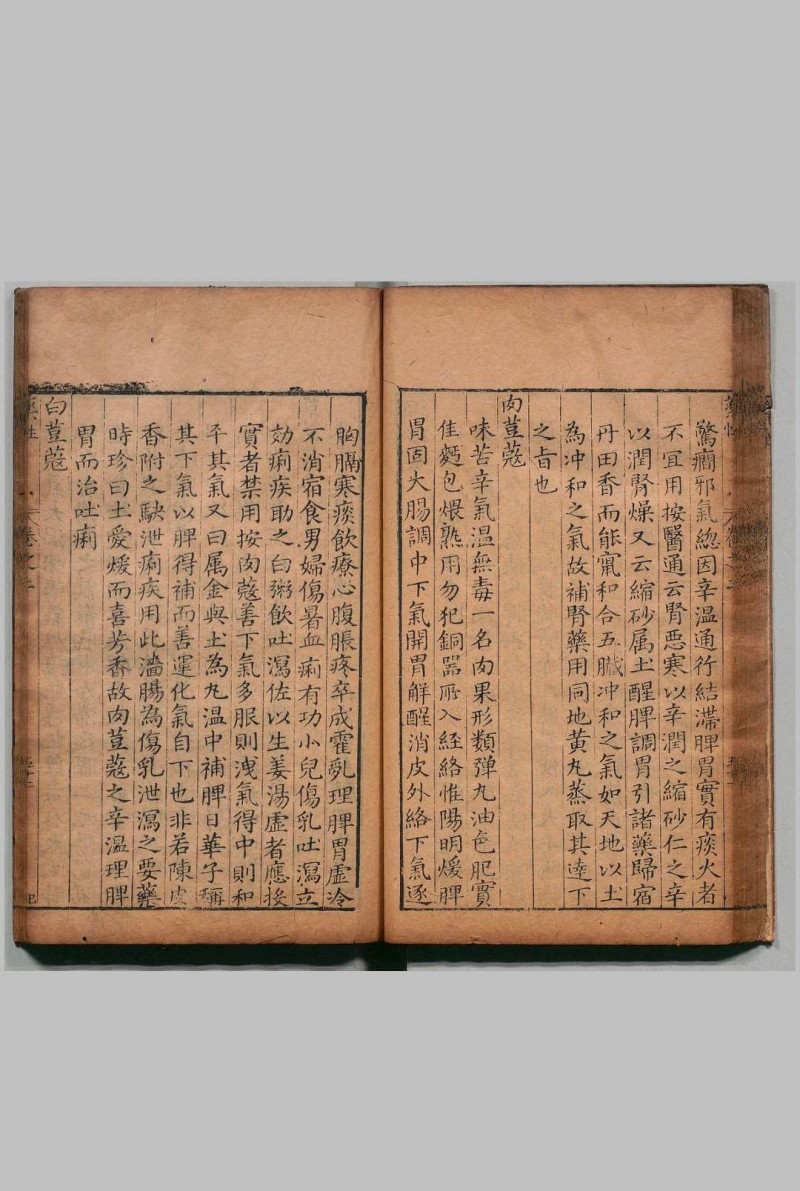 驚癎邪氣總因辛温通行結滯脾胃實有痰火者
不宜用按醫通云腎惡寒以辛潤之縮砂仁之辛
以潤腎燥又云縮砂属土醒脾調胃引諸藥歸宿
丹田香而能竄和合五臟冲和之氣如天地以土
為冲和之氣故補腎藥用同地黄丸蒸取其達下
之旨也
肉荳蔻
味苦辛氣温無毒一名肉果形類弹丸油色肥實
佳麵包煨熟用勿犯銅器所入経絡惟陽明煖脾
胃固大腸調中下氣開胃觧酲消皮外絡下氣逐
胸膈寒痰飲療心腹脹疼卒成霍亂理脾胃虚冷
不消宿食男婦傷暑血痢有功小兒傷乳吐瀉立
効痢疾助之白粥飲吐瀉佐以生姜湯虚者應投
實者禁用按肉蔻善下氣多服則洩氣得中則和
平其氣又曰属金與土為丸温中補脾日華子稱
其下氣以脾得補而善運化氣自下也非若陳皮
香附之駃泄痢疾用此濇腸為傷乳泄瀉之要藥
時珍曰土愛煖而喜芳香故肉荳蔻之辛温理脾
胃而治吐痢
白荳蔻
藥性
卷之二
五十二